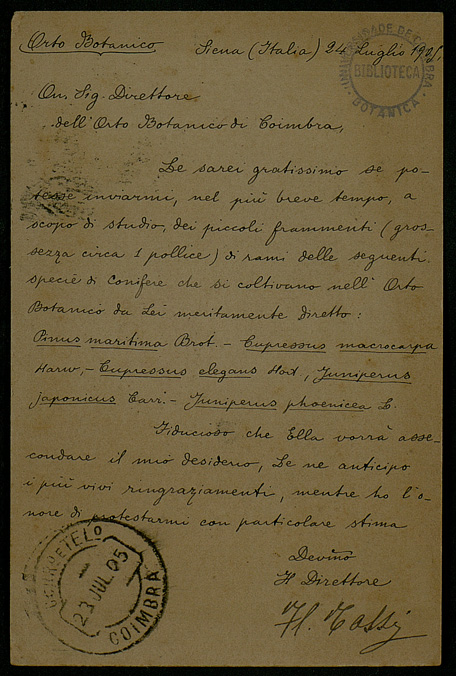 Orto Botanico
Siena (Italia) 24 Luglio 1905,
UNIVERSIDADE DE COIMBRA
BIBLIOTECA
BOTANICA
On. Sig. Direttore
dell'Orto Botanico di Coimbra,
Le sarei gratissimo se po-
tesse inviarmi, nel più breve tempo, a
scopo di studio, dei piccoli frammenti (gros-
sezza circa 1 pollice) di rami delle seguenti
specie di Conifere che si coltivano nell'Orto
Botanico da Lei meritamente diretto:
Pinus maritima Brot. - Cupressus macrocarpa
Harw, - Cupressus elegans Hort, Juniperus
japonicus Carr. - Juniperus phoenicea L.
Fiducioso che Ella vorrà asse-
condare il mio desiderio, Le ne anticipo
i più vivi ringraziamenti, mentre ho l'o-
nore di protestarmi con particolare stima
Devmo
Il Direttore
Fl. Tassi
23 JUL. 05
COIMBRA